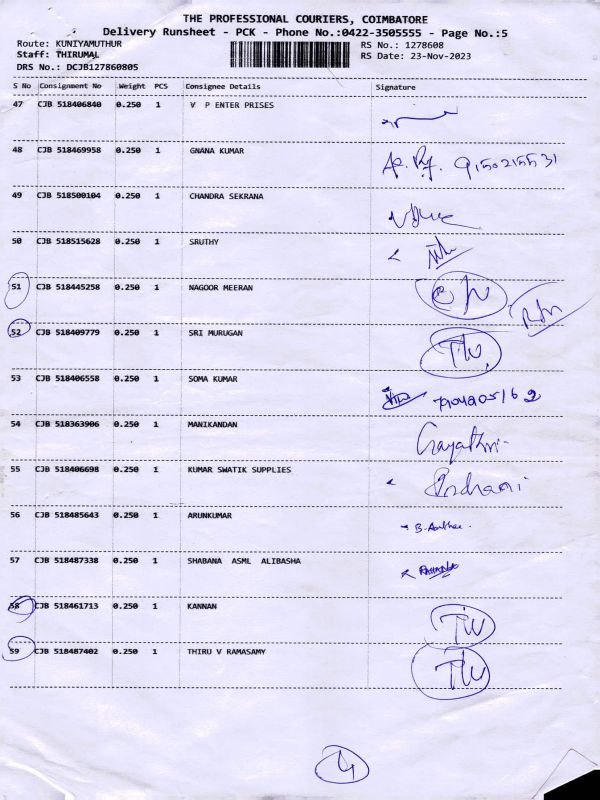 THE PROFESSIONAL COURIERS, COIMBATORE
Delivery Runsheet - PCK - Phone No.:0422-3505555 - Page No.:5
Route: KUNIYAMUTHUR RS No.: 1278608
Staff: THIRUMAL RS Date: 23-Nov-2023
DRS No.: DCJB127860805
S No Consignment No Weight PCS Consignee Details Signature
47 CJB 518406840 0.250 1 V P ENTER PRISES
48 CJB 518469958 0.250 1 GNANA KUMAR 9150215531
49 CJB 518500104 0.250 1 CHANDRA SEKRANA
50 CJB 518515628 0.250 1 SRUTHY
51 CJB 518445258 0.250 1 NAGOOR MEERAN
52 CJB 518409779 0.250 1 SRI MURUGAN
53 CJB 518406558 0.250 1 SOMA KUMAR
54 CJB 518363906 0.250 1 MANIKANDAN Gayathri
55 CJB 518406698 0.250 1 KUMAR SWATIK SUPPLIES
56 CJB 518485643 0.250 1 ARUNKUMAR
57 CJB 518487338 0.250 1 SHABANA ASML ALIBASHA
58 CJB 518461713 0.250 1 KANNAN
59 CJB 518487402 0.250 1 THIRU V RAMASAMY
4